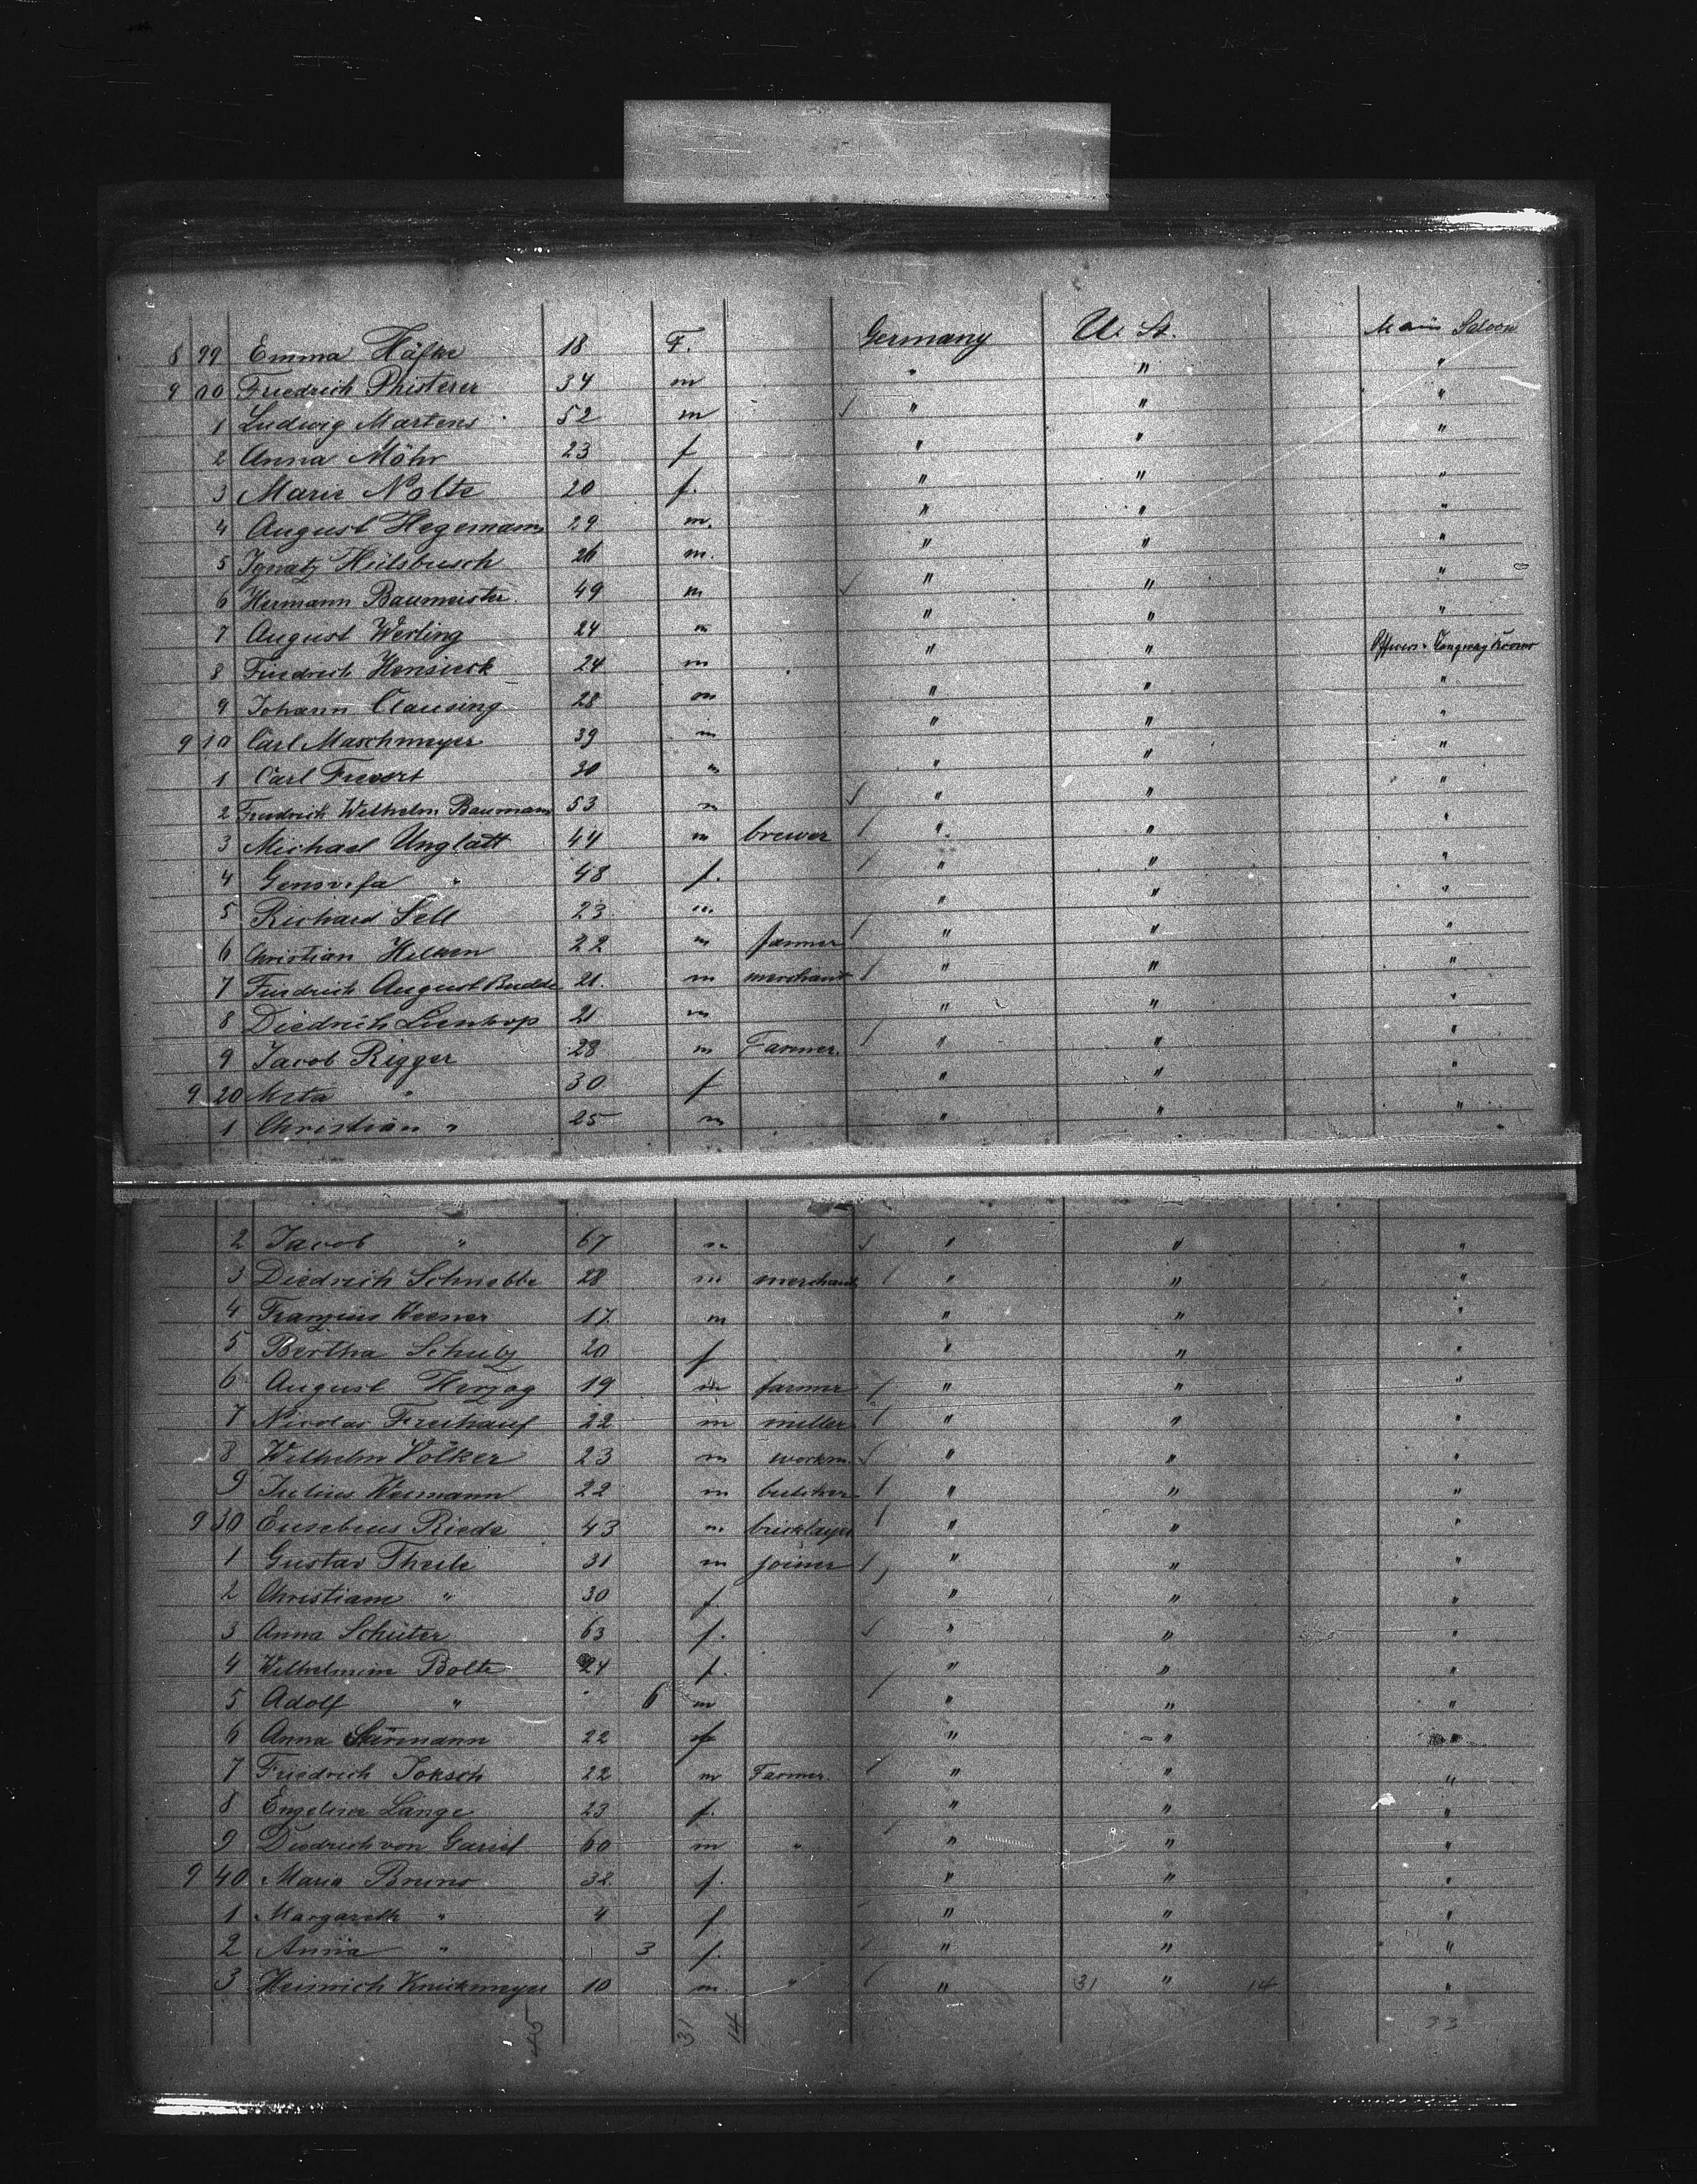 8 99 Emma Häfke 18 F. Germany U. St. Main Saloon
9 00 Friedrich Phisterer 34 m " " "
1 Ludwig Martens 52 m " " "
2 Anna Möhr 23 f " " "
3 Marie Nolte 20 f. " " "
4 August Hegemann 29 m. " " "
5 Ignatz Hülsbusch 26 m. " " "
6 Hermann Baumeister 49 m " " "
7 August Werling 24 m " " "
8 Friedrich Hensieck 24 m " " Officers & Gangway Rooms
9 Johann Clausing 28 m " " "
9 10 Carl Maschmeyer 39 m " " "
1 Carl Frevert 30 m " " "
2 Friedrich Wilhelm Baumann 53 m " " "
3 Michael Unglatt 44 m brewer " " "
4 Genovefa " 48 f. " " "
5 Richard Sell 23 m " " "
6 Christian Helken 22 m farmer " " "
7 Friedrich August Budde 21. m merchant " " "
8 Diedrich Lienhop 21 m " " "
9 Jacob Rigger 28 m Farmer. " " "
9 20 Meta " 30 f " " "
1 Christian " 25 m " " "
2 Jacob " 67 m " " "
3 Diedrich Schnebbe 28 m merchant " " "
4 Franzius Weener 17. m " " "
5 Bertha Schulz 20 f " " "
6 August Herzog 19 m farmer " " "
7 Nicolas Freihauf 22 m miller " " "
8 Wilhelm Völker 23 m workm. " " "
9 Julius Weimann 22 m butcher " " "
9 30 Eusebius Riede 43 m bricklayer " " "
1 Gustav Theile 31 m joiner " " "
2 Christiane " 30 f. " " "
3 Anna Schüter 63 f. " " "
4 Wilhelmine Bolte 24 f. " " "
5 Adolf " 6 m " " "
6 Anna Stürmann 22 f " " "
7 Friedrich Joksch 22 m Farmer. " " "
8 Engeline Lange 23 f. " " "
9 Diedrich von Gariel 60 m " " " "
9 40 Maria Bruns 32 f. " " "
1 Margareth " 4 f " " "
2 Anna " 3 f. " " "
3 Heinrich Knickmeyer 10 m. " " 31 " 14 "
45 31 14 33